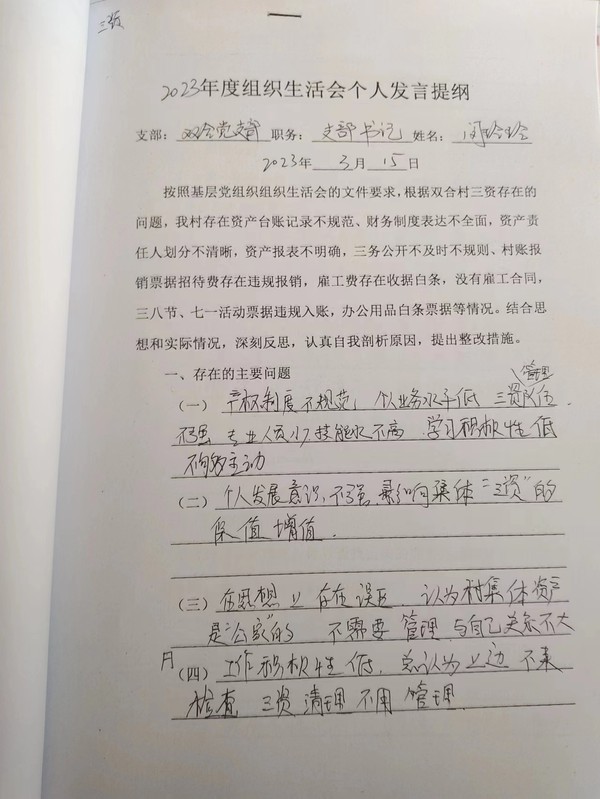 三资
2023年度组织生活会个人发言提纲
支部：双合党支部 职务：支部书记 姓名：
2023年 3月 15日
按照基层党组织组织生活会的文件要求，根据双合村三资存在的
问题，我村存在资产台账记录不规范、财务制度表达不全面，资产责
任人划分不清晰，资产报表不明确，三务公开不及时不规则、村账报
销票据招待费存在违规报销，雇工费存在收据白条，没有雇工合同，
三八节、七一活动票据违规入账，办公用品白条票据等情况。结合思
想和实际情况，深刻反思，认真自我剖析原因，提出整改措施。
一、存在的主要问题
管理
（一）产权制度不规范，个人业务水平低 三资队伍
不强 专业人员少，技能水不高 学习积极性低
不够主动
（二）个人发展意识不强，影响集体"三资"的
保值增值.
（三）在思想上存在误区 认为村集体资产
是"公家"的 不需要管理 与自己关系不大
（四）工作积极性低，总认为上边不来
检查 三资清理不用管理.